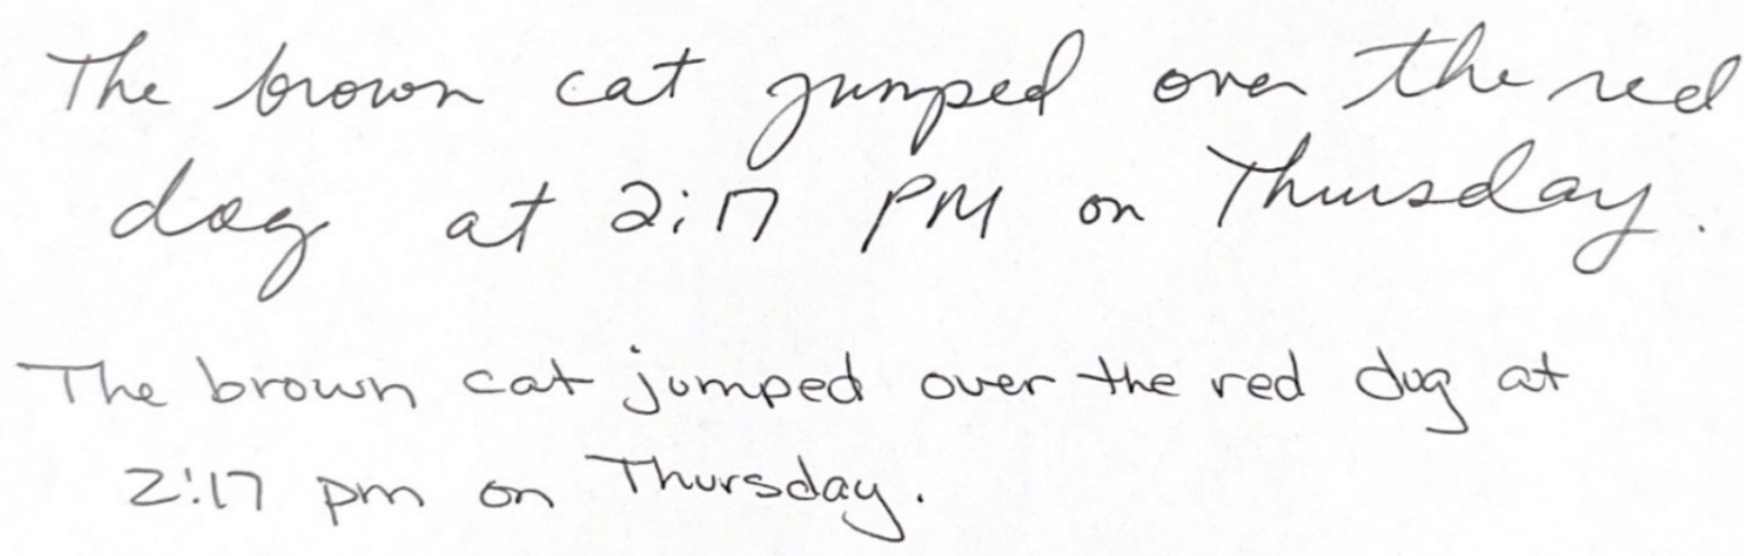 The brown cat jumped over the red
dog at 2:17 PM on Thursday.
The brown cat jumped over the red dog at
2:17 pm on Thursday.